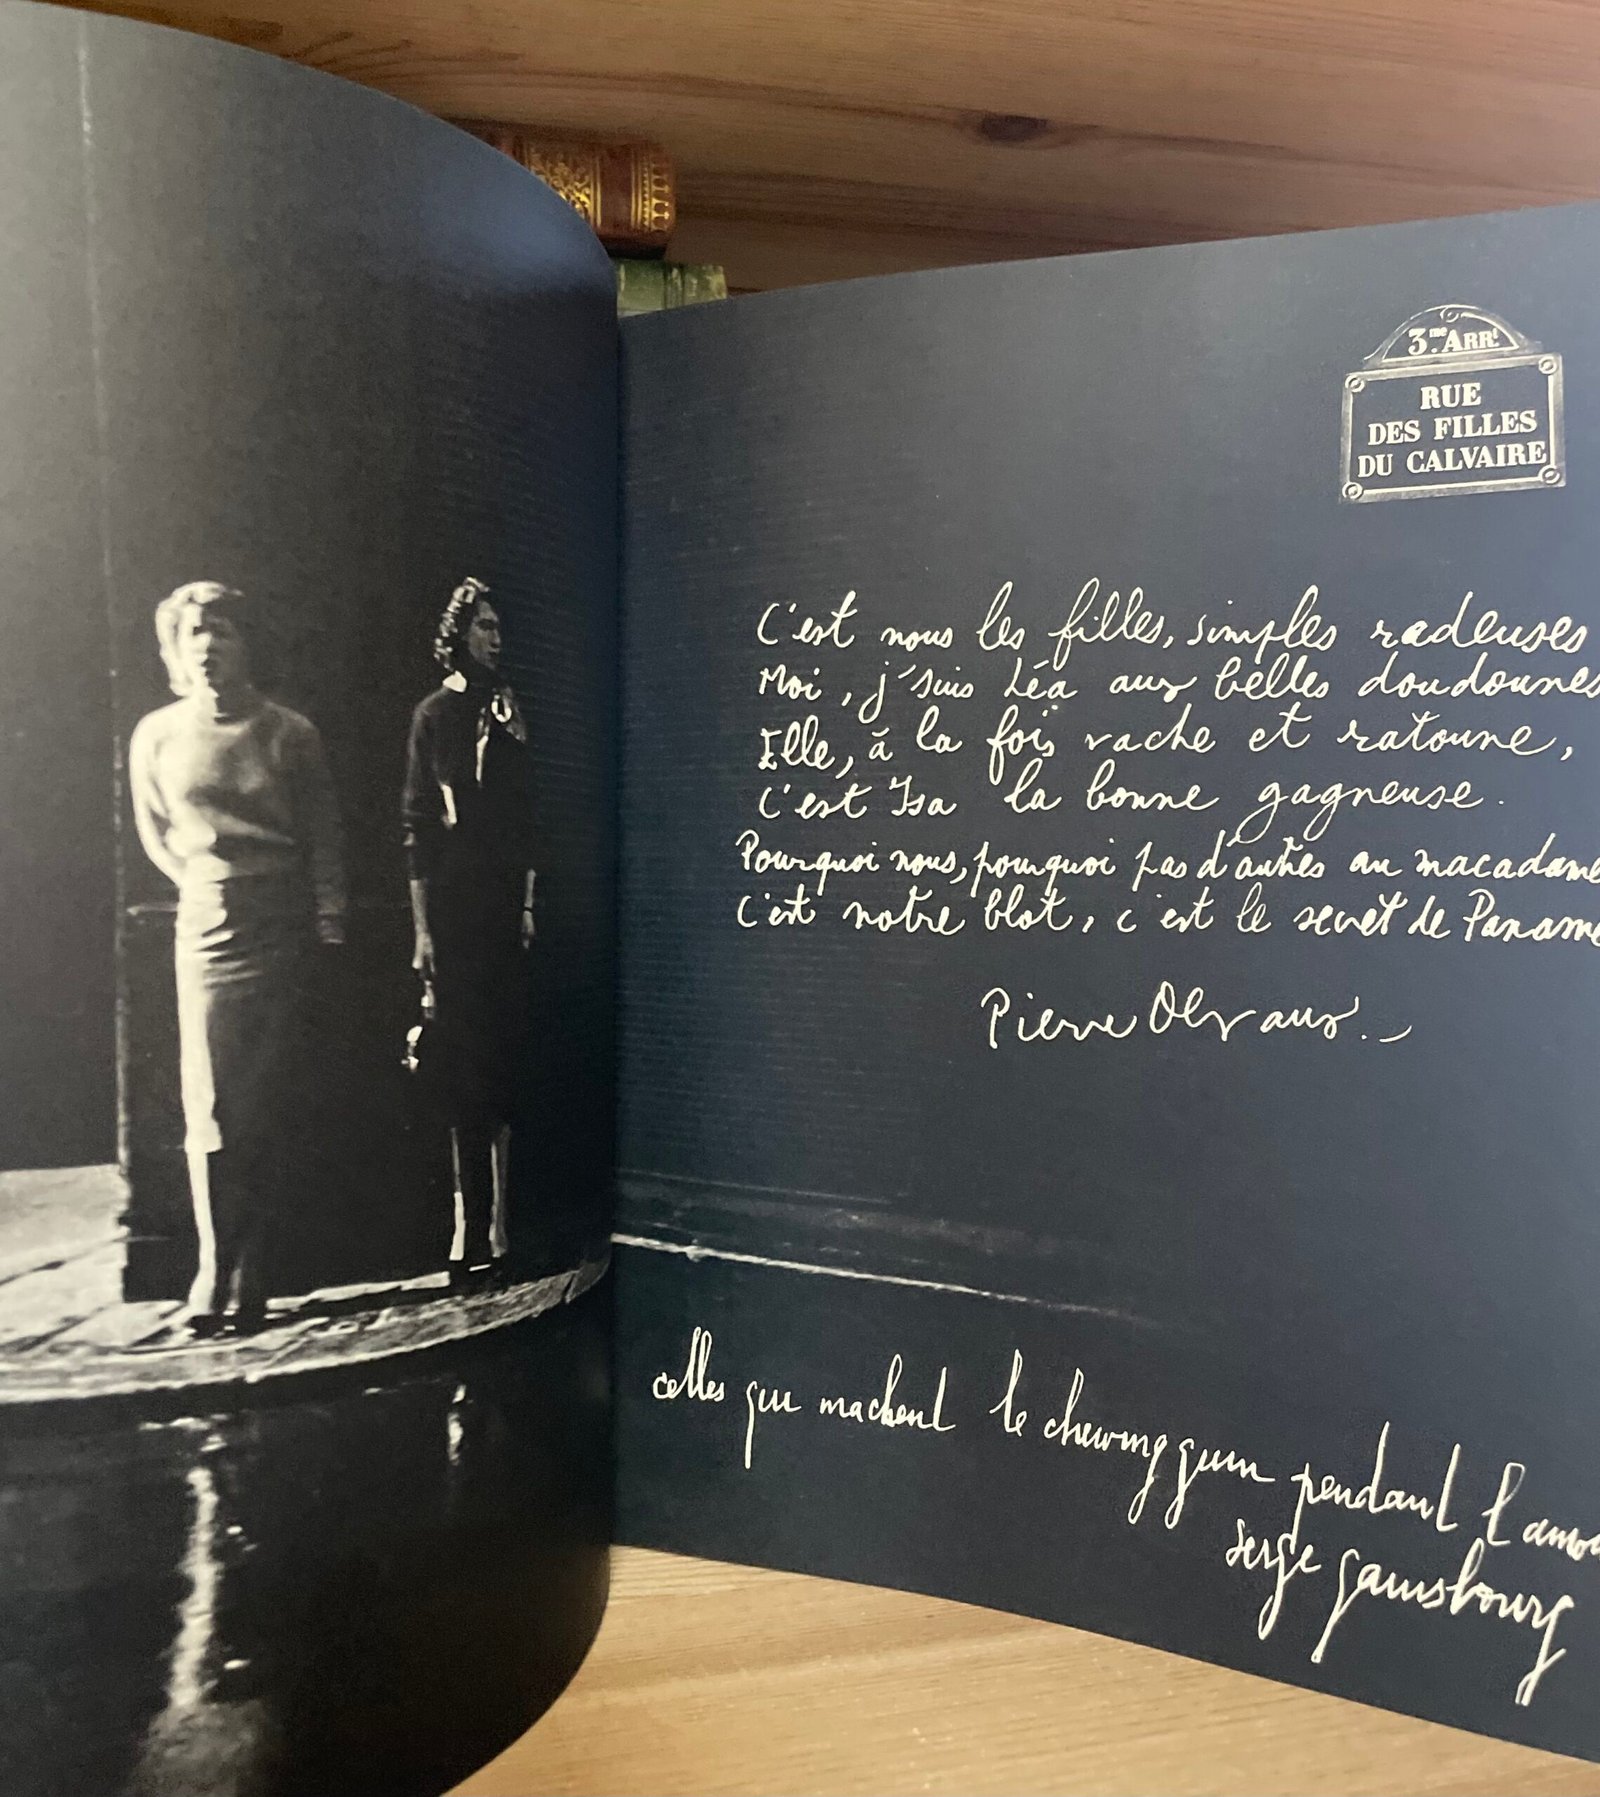 3.me ARRt
RUE
DES FILLES
DU CALVAIRE
C'est nous les filles, simples radeuses
Moi, j'suis Léa aux belles doudounes
Elle, à la fois vache et ratoune,
C'est Isa la bonne gagneuse.
Pourquoi nous, pourquoi pas d'autres au macadame
C'est notre blot, c'est le secret de Paname
Pierre
celles qui machent le chewing gum pendant l'amou
serge gainsbourg